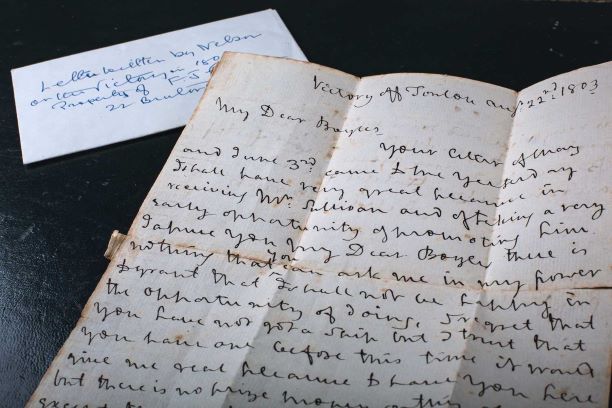 Letter written by Nelson
on the Victory in 180
Property of F.J.
22
Victory off Toulon Augt. 22nd: 1803
My Dear Boyles
Your letter of May
and June 3rd came to me yesterday
I shall have very great pleasure in
receiving Mr. Sullivan and of taking a very
early opportunity of promoting him
I assure you my Dear Boyles there is
nothing that you can ask me in my power
to grant that I shall not be happy in
the opportunity of doing, I regret that
you have not got a ship but I trust that
you have one before this time it would
give me real pleasure to have you here
but there is no prize money
except